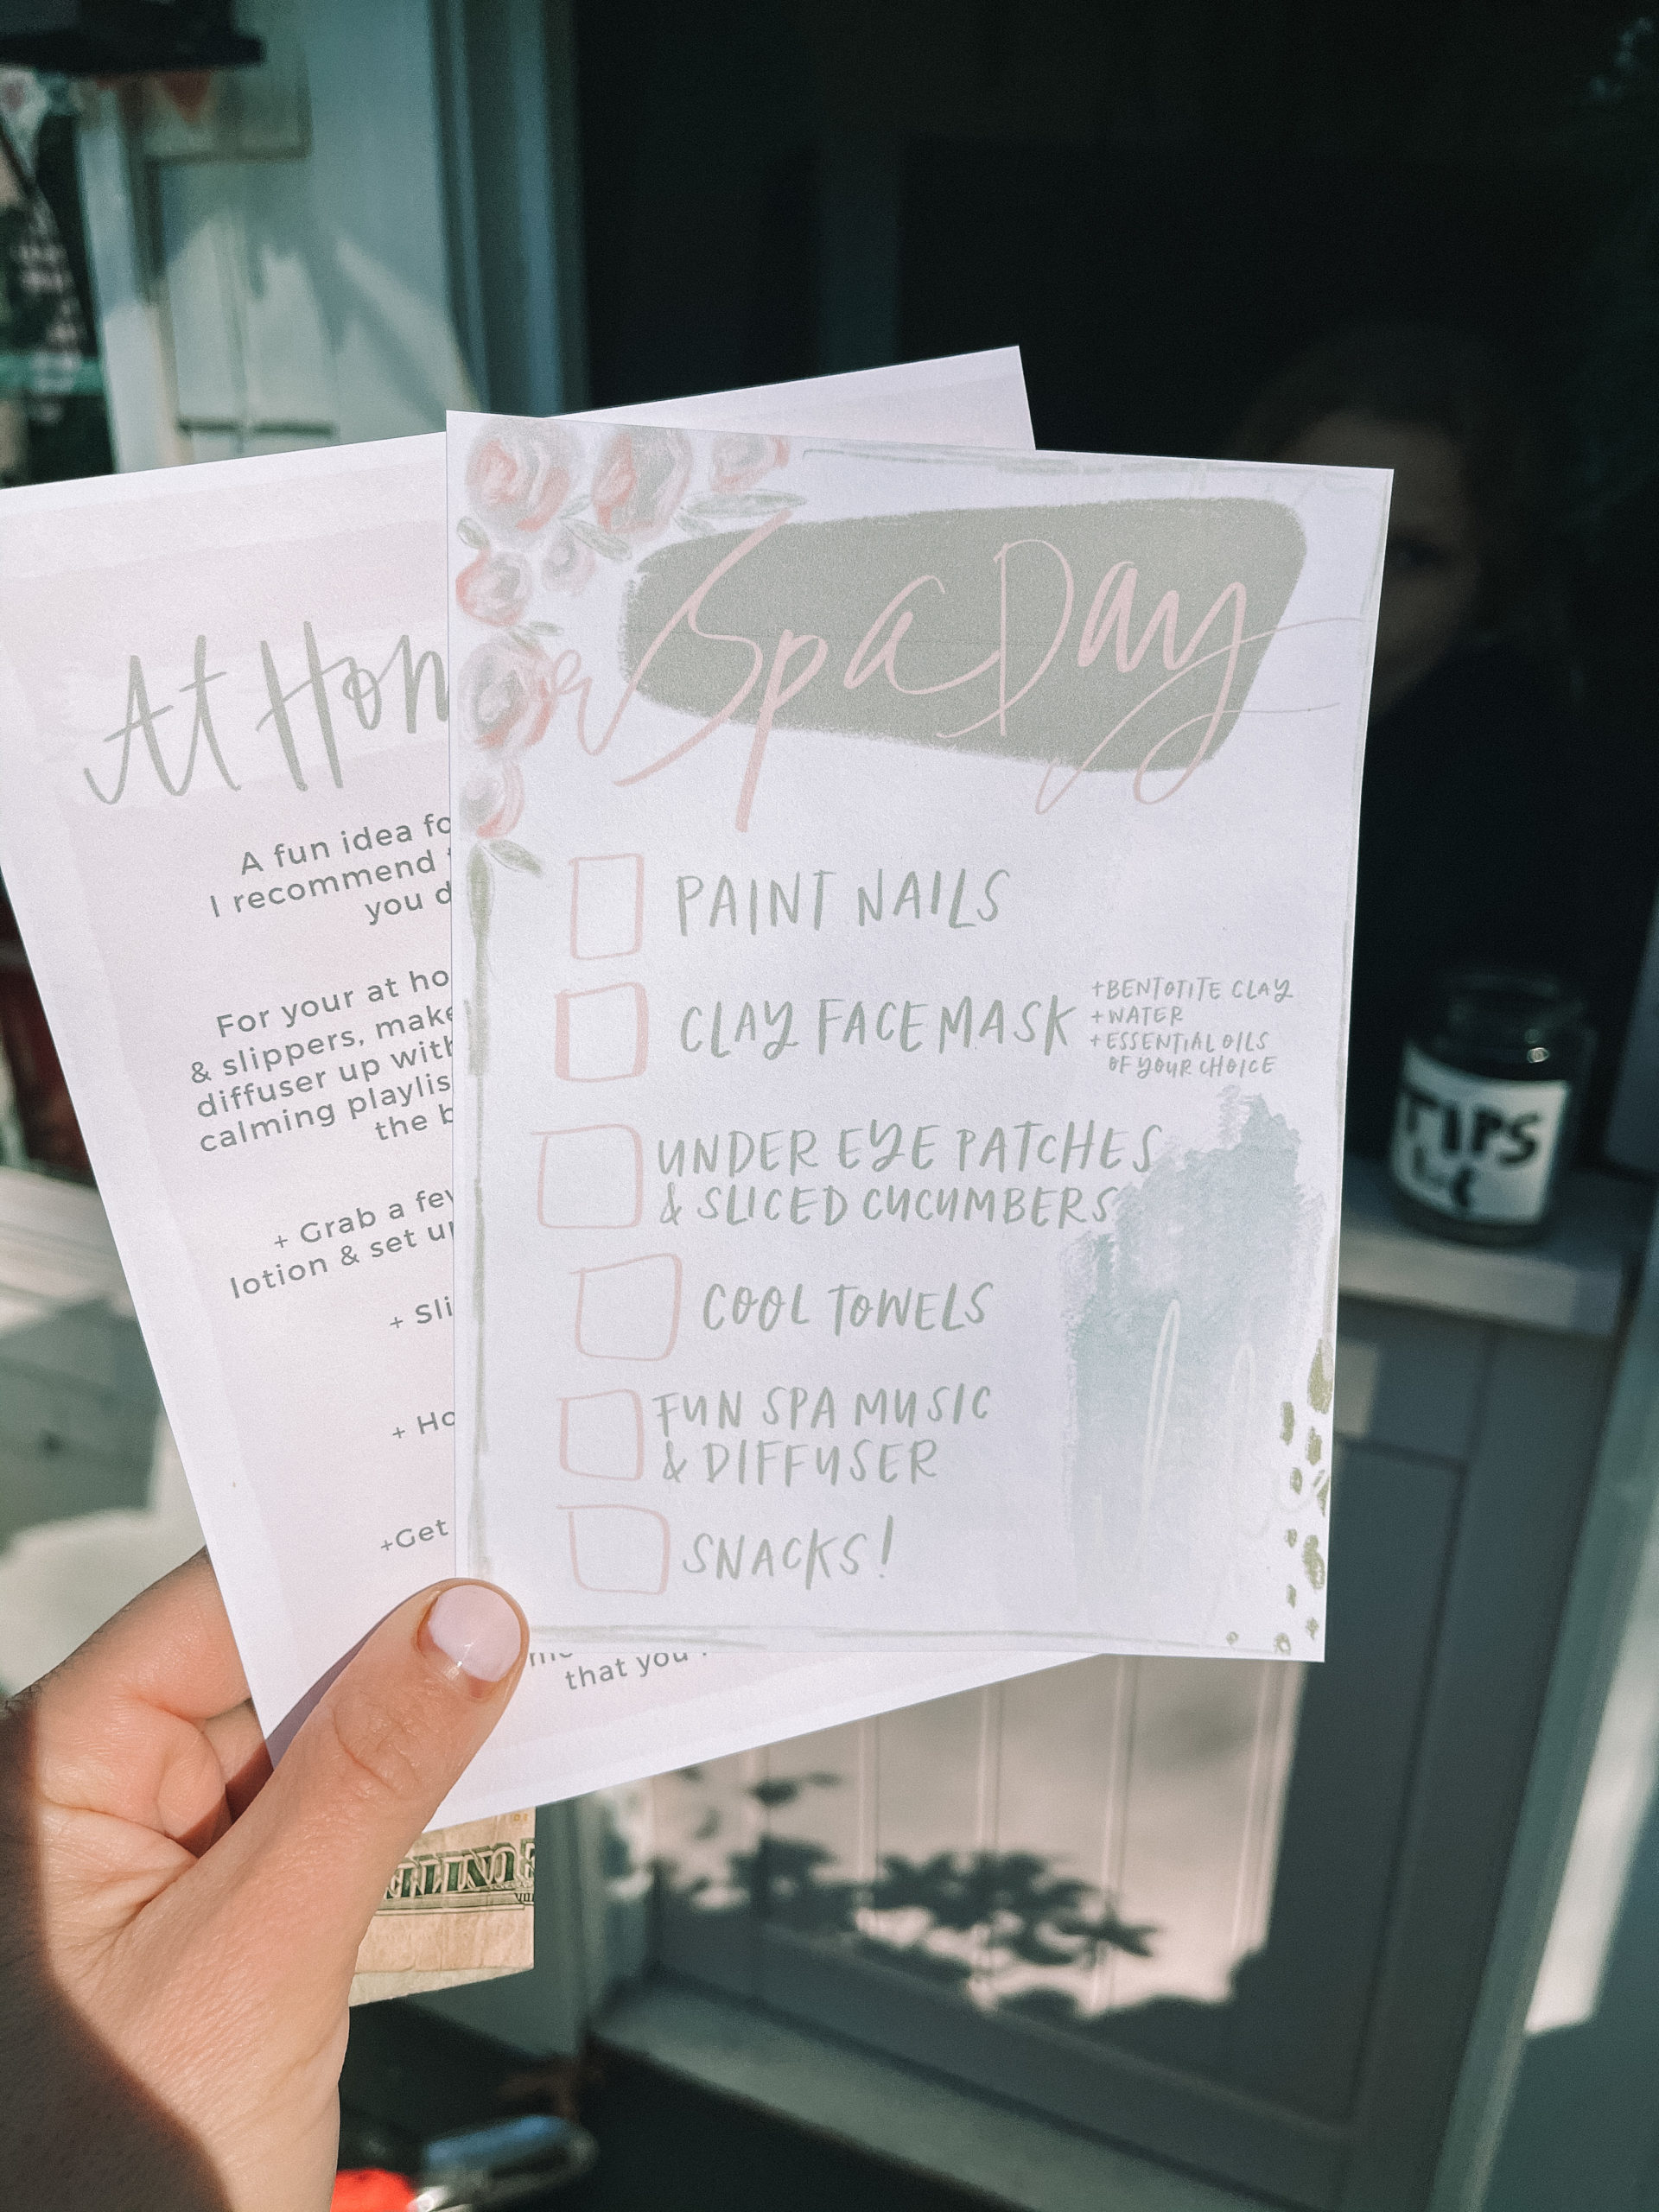 Spa Day
PAINT NAILS
CLAY FACE MASK
+BENTOTITE CLAY
+WATER
+ESSENTIAL OILS
OF YOUR CHOICE
UNDER EYE PATCHES
& SLICED CUCUMBERS
COOL TOWELS
FUN SPA MUSIC
& DIFFUSER
SNACKS!
At Hom
A fun idea fo
I recommend
you d
For your at ho
& slippers, make
diffuser up with
calming playlis
the b
+ Grab a few
lotion & set up
+ Sli
+ Ho
+Get
that you
TIPS